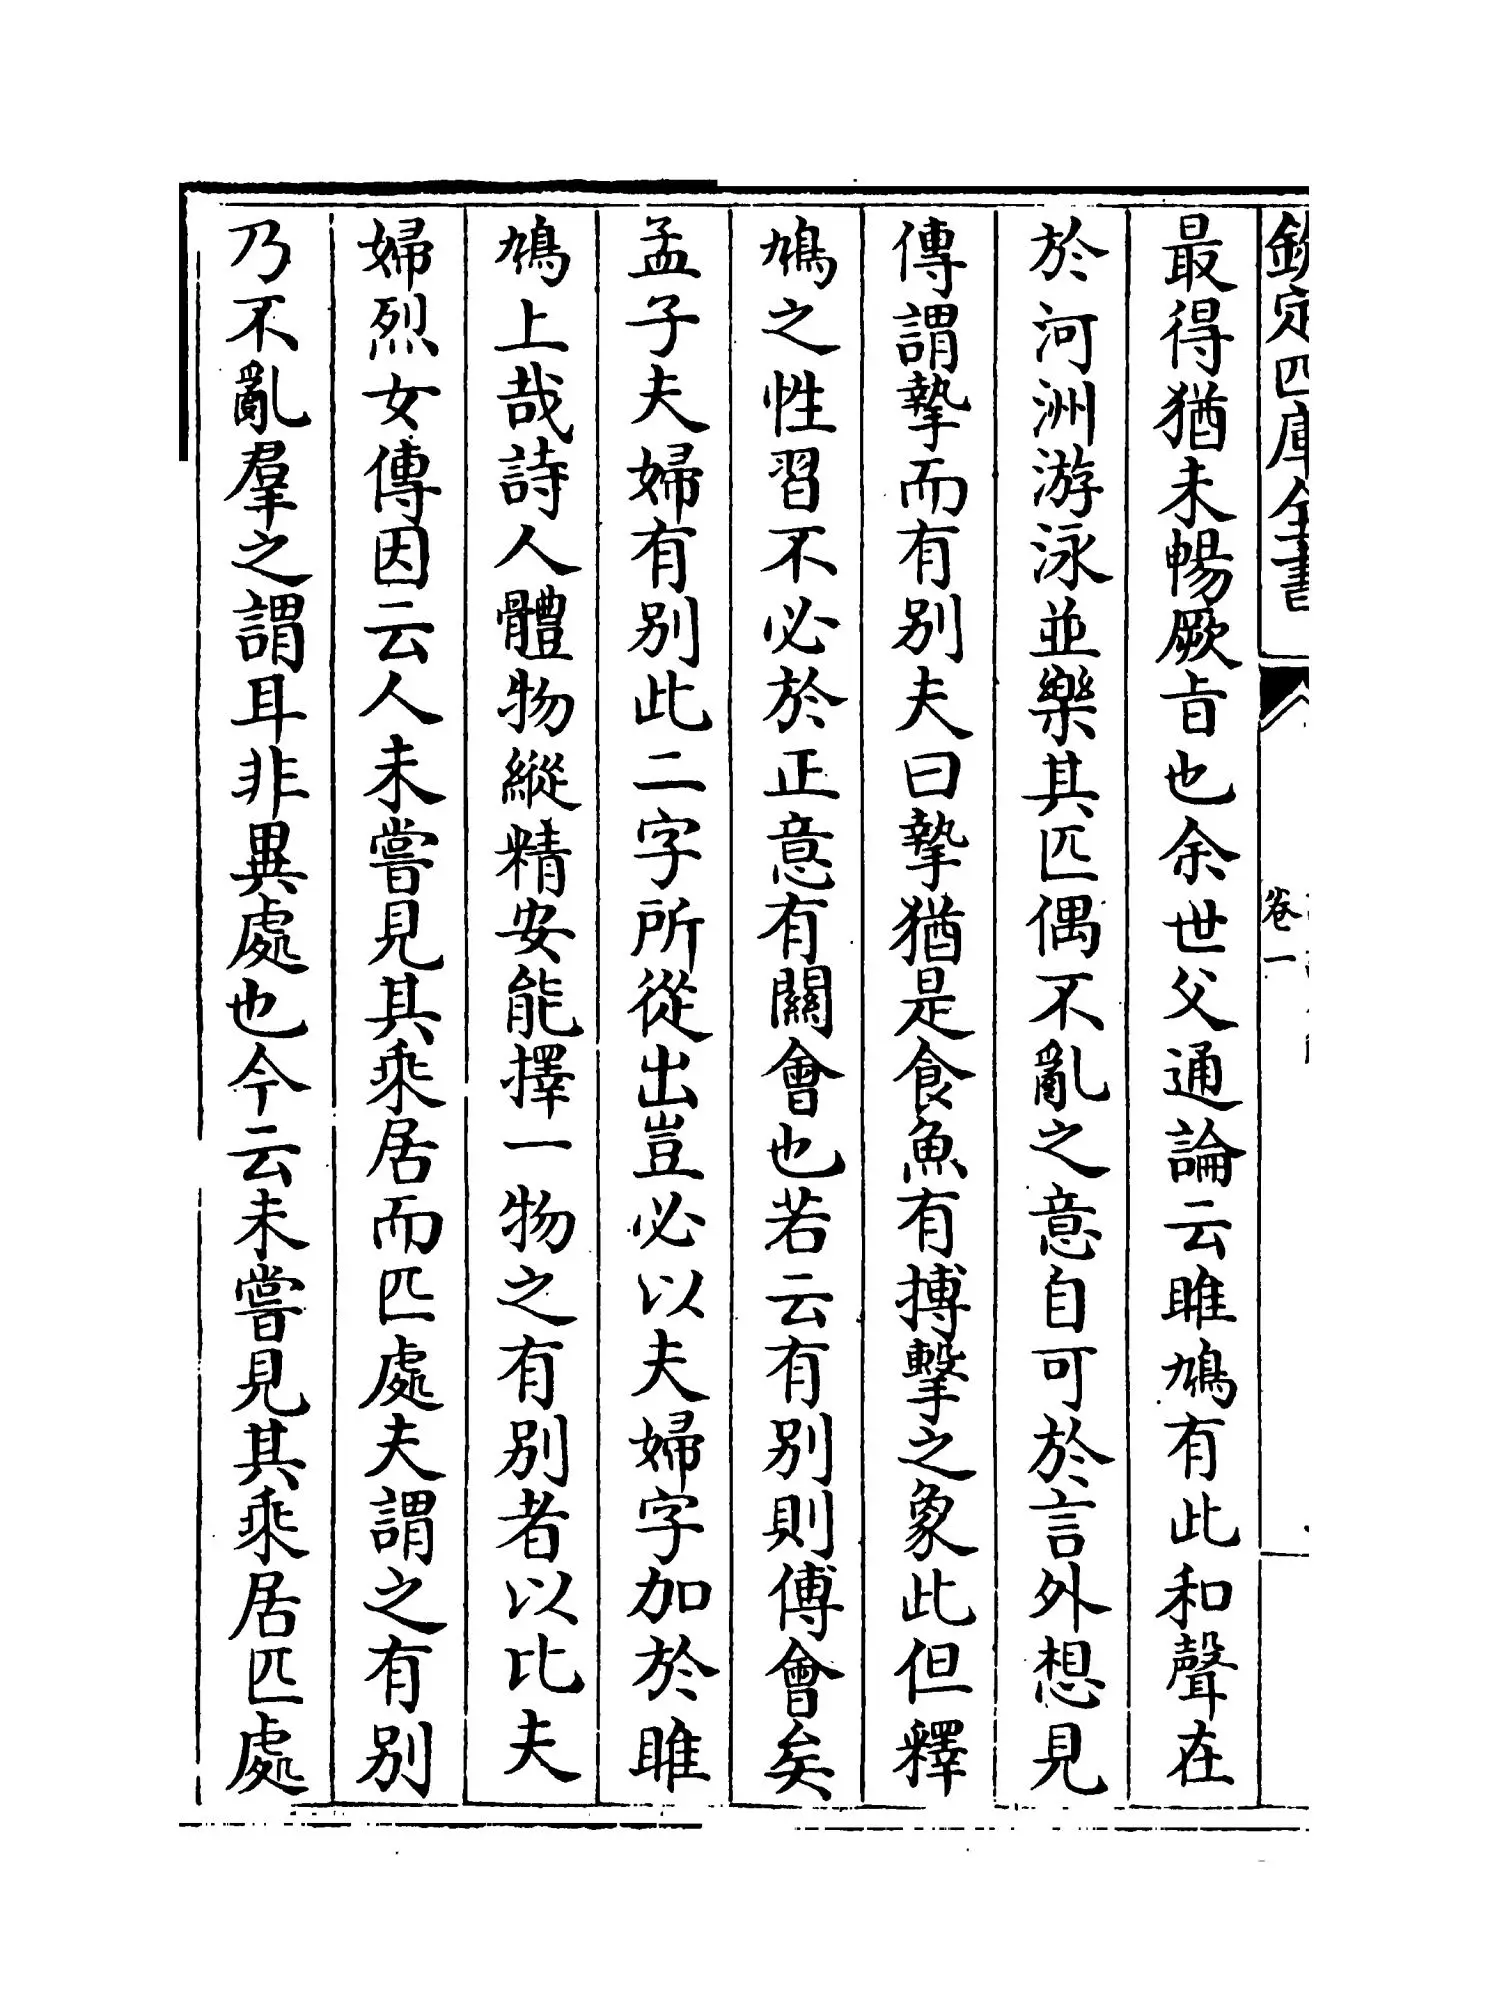 欽定四庫全書
卷一
最得猶未暢厥旨也余世父通論云雎鳩有此和聲在
於河洲游泳並樂其匹偶不亂之意自可於言外想見
傳謂摯而有别夫曰摯猶是食魚有搏擊之象此但釋
鳩之性習不必於正意有關會也若云有别則傅會矣
孟子夫婦有别此二字所從出豈必以夫婦字加於雎
鳩上哉詩人體物縱精安能擇一物之有别者以比夫
婦烈女傳因云人未嘗見其乘居而匹處夫謂之有别
乃不亂羣之謂耳非異處也今云未嘗見其乘居匹處